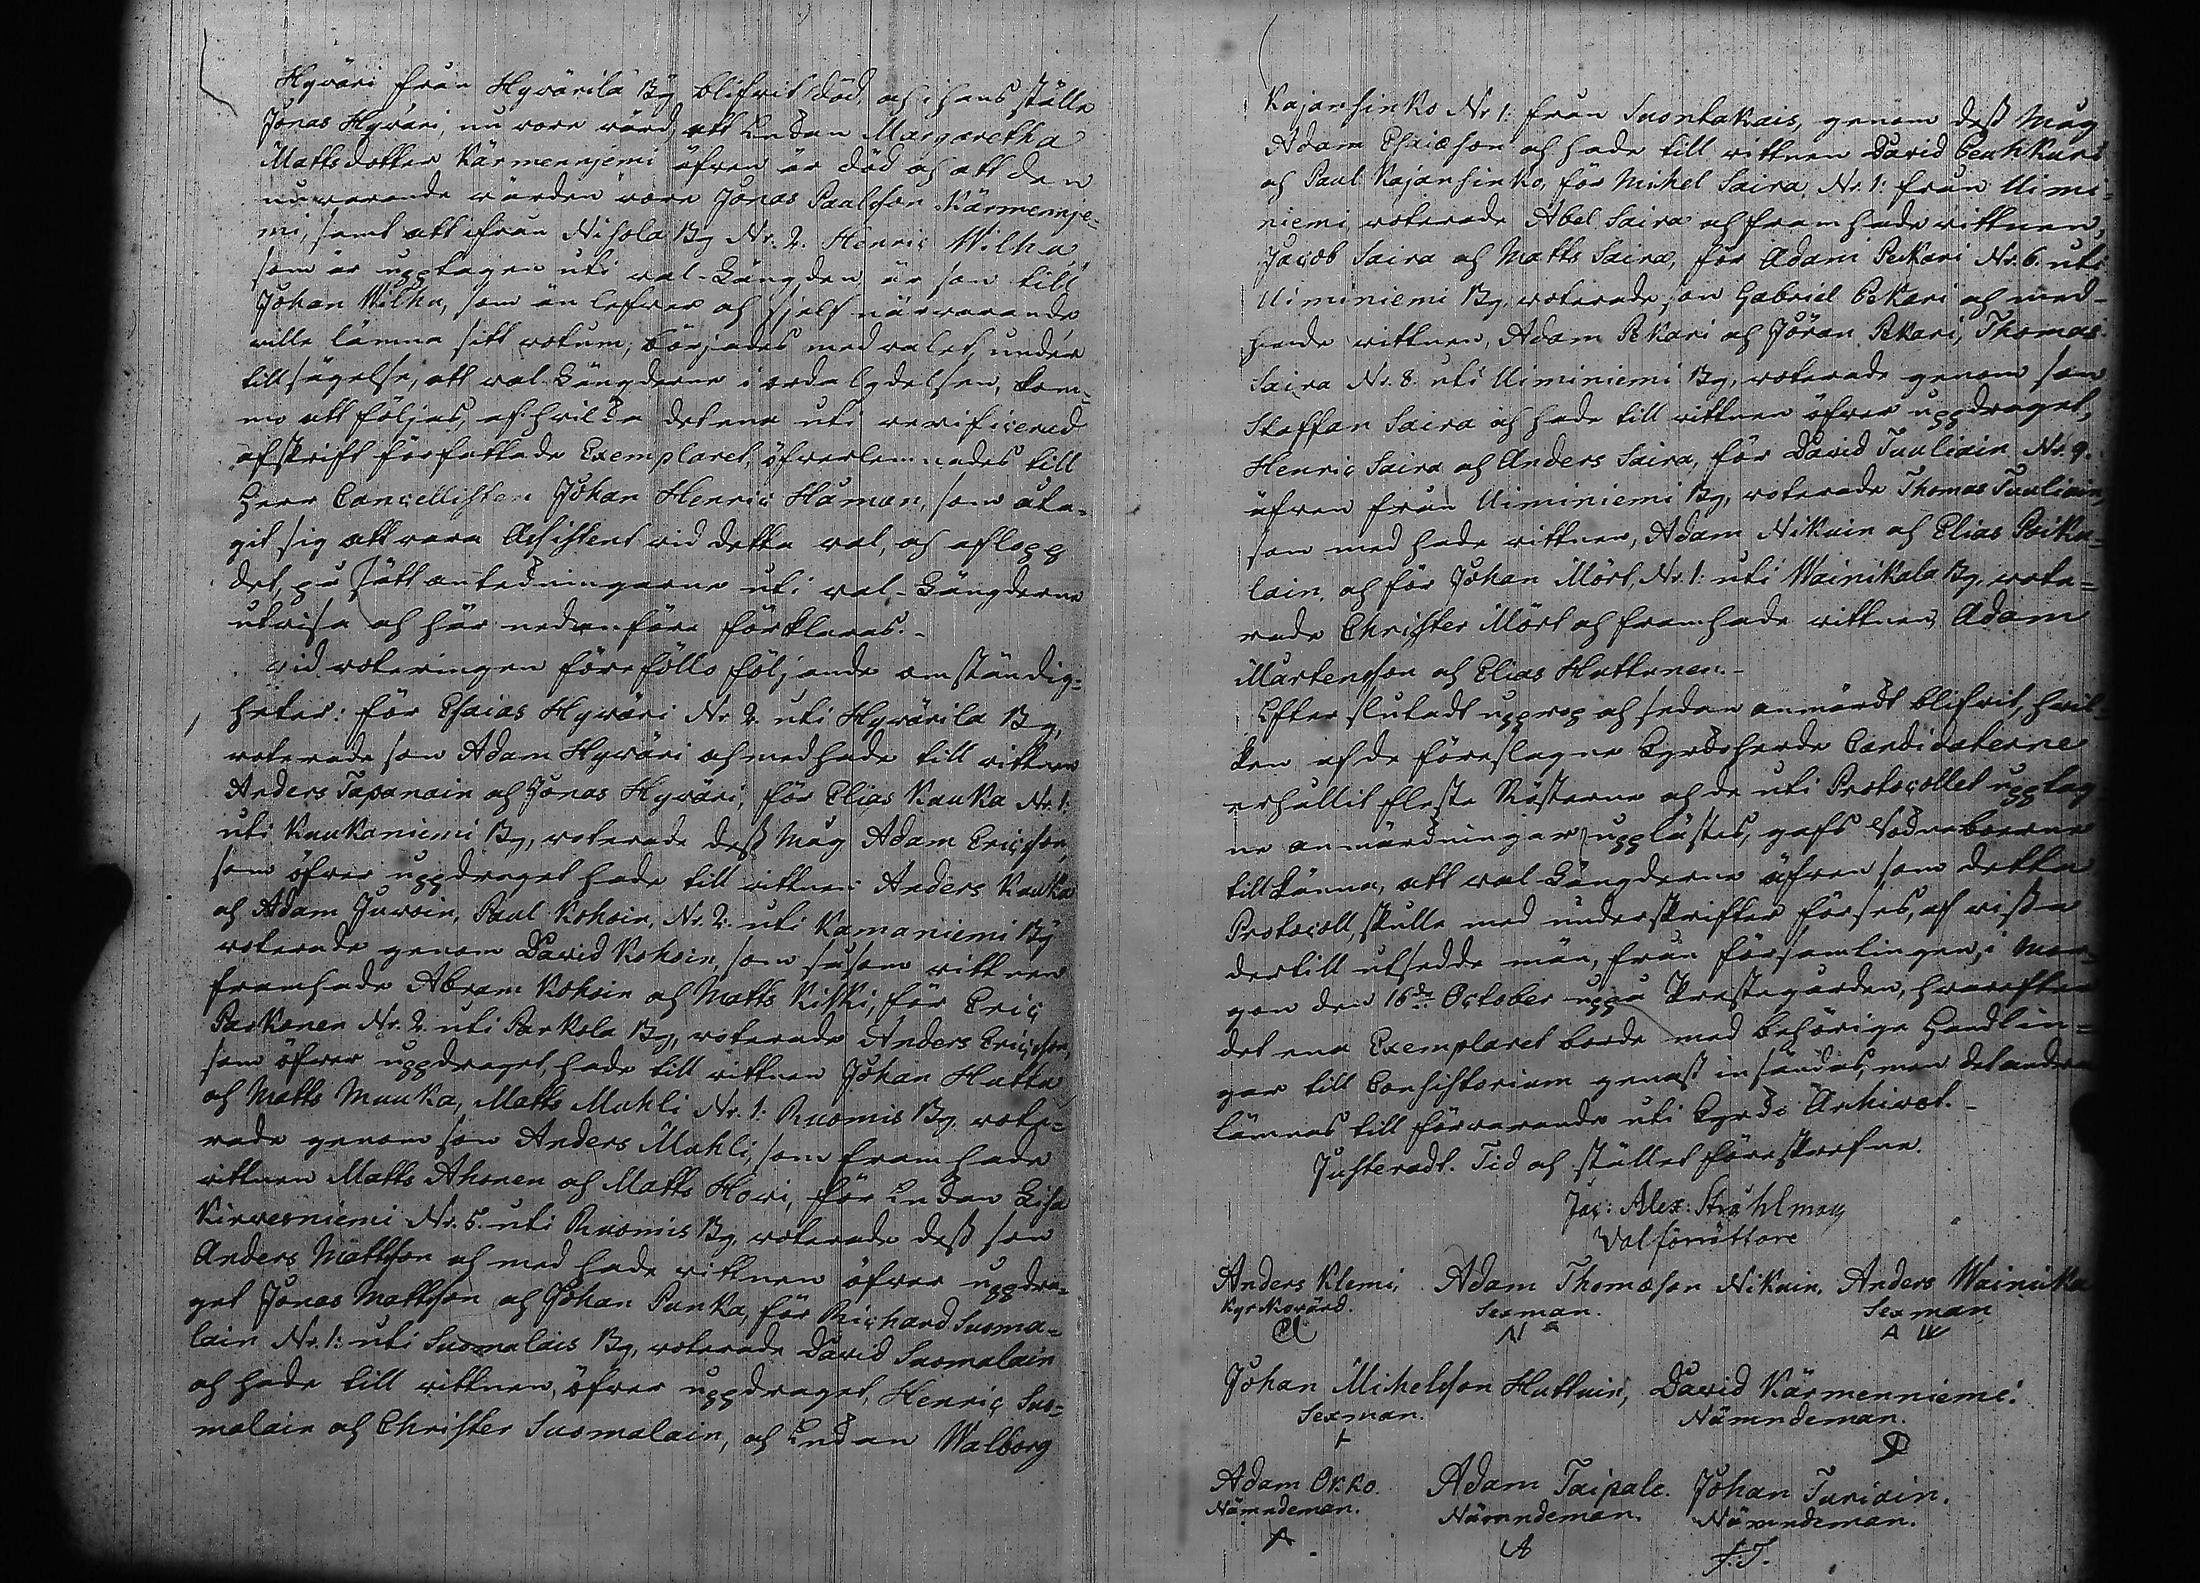 Hyväri från Hyvärilä By blifvit död, och i hans ställe
Jonas Hyväri, nu vore värd, att Enkan Margaretha
Mattsdotter Kärmenniemi äfven är död och att den
nuvarande värden vore Jonas Paulsson Kärmennje-
mi, samt att ifrån Nisola By Nr. 2. Henric Wilha,
som är upptagen uti val-Längden är son till
Johan Wilhu, som än lefver och sjelf närvarande
ville lämna sitt votum, börjades med valet, under
tillsägelse, att val-Längderne i ordalydelsen, kom-
mo att följas, af hvilka det ena uti verificerad
afskrift författade Exemplaret, öfverlemnades till
Herr Cancellisten Johan Henric Håman, som åta-
git sig att vara Assistent vid detta val, och aflopp
det, på sätt anteckningarne uti val-Längderne
utvisa och här nedanföre förklaras.-
Vid voteringen föreföllo följande omständig-
heter: för Esaias Hyväri Nr 2. uti Hyvärilä By,
voterade son Adam Hyväri och medhade till vittnen
Anders Tapanain och Jonas Hyväri, för Elias Kauka Nr. 1.
uti Kaukaniemi By, voterade dess Måg Adam Ericsson,
som öfver uppdraget hade till vittnen Anders Kauka
och Adam Juvain, Paul Kohoin, Nr. 2. uti Kamaniemi By
voterade genom David Kohoin, som såsom vittnen
framhade Abram Kohoin och Matts Kiski, för Eric
Paskonen Nr. 2 uti Parkola By, voterade Anders Ericsson,
som öfver uppdraget, hade till vittnen Johan Hatta
och Matts Muuka, Matts Muhli Nr. 1: Ruomis By, vote-
rade genom son Anders Muhli, som framhade
vittnen Matts Ahonen och Matts Hovi, för Enkan Lisa
Kirvesniemi Nr. 5. uti Ruomis By voterade dess son
Anders Mattsson och medhade vittnen öfver uppdra-
get Jonas Mattsson och Johan Punka, för Richard Suoma-
lain Nr. 1: uti Suomalais By, voterade David Suomalain
och hade till vittnen, öfver uppdraget, Henric Suo-
malain och Christer Suomalain, och Enkan Walborg
Kajansinko Nr 1: från Suontakais, genom dess Måg
Adam Esaiæson och hade till vittnen David Peuhkuri
och Paul Kajansinko, för Mikel Saira Nr. 1: från Uimi-
niemi, voterade Abel Saira och framhade vittnen,
Jacob Saira och Matts Saira, för Adam Pekari Nr. 6. uti
Uiminiemi By, voterade son Gabriel Pekari och med-
hade vittnen, Adam Pekari och Jöran Pekari, Thomas
Saira Nr. 8. uti Uiminiemi By, voterade genom son
Staffan Saira och hade till vittnen öfver uppdraget,
Henric Saira och Anders Saira, för David Tuuliain Nr. 9.
äfven från Uiminiemi By, voterade Thomas Tuuliain,
som medhade vittnen, Adam Nikuin och Elias Poiku-
lain, och för Johan Mört, Nr. 1: uti Wainikala By, vote-
rade Christer Mört och framhade vittnen, Adam
Mårtensson och Elias Huttunen.-
Efter slutadt upprop och sedan anmärkt blifvit, hvil-
ken af de föreslagne Kyrkoherde Candidaterne
erhållit fleste Rösterne och de uti Protocollet uppteg-
ne anmärkningar upplästes, gafs Soknboerne
tillkänna, att val-Längderne äfven som detta
Protocoll, skulle med underskrifter förses, af vissa
dertill utsedde män, från församlingen, i mor-
gon den 16de October uppå Prestegården, hvarefter
det ena Exemplaret borde med behörige Handlin-
gar till Consistorium genast insändas, men det andra
lämnas till förvarande uti Kyrko Archivet.-
Justeradt. Tid och stället föreskrefne.
Jac: Alex: Stråhlman
Valförrättare
Anders Klemi, Adam Thomæson Nikuin, Anders Wainikka
Kyrkovärd. Sexman. Sexman
A W
Johan Michelsson Huttuin, David Kärmenniemi.
Sexman. Nämndeman.
Adam Okko. Adam Taipale. Johan Turiain.
Nämndeman. Nämndeman. Nämndeman.
A A J.T.